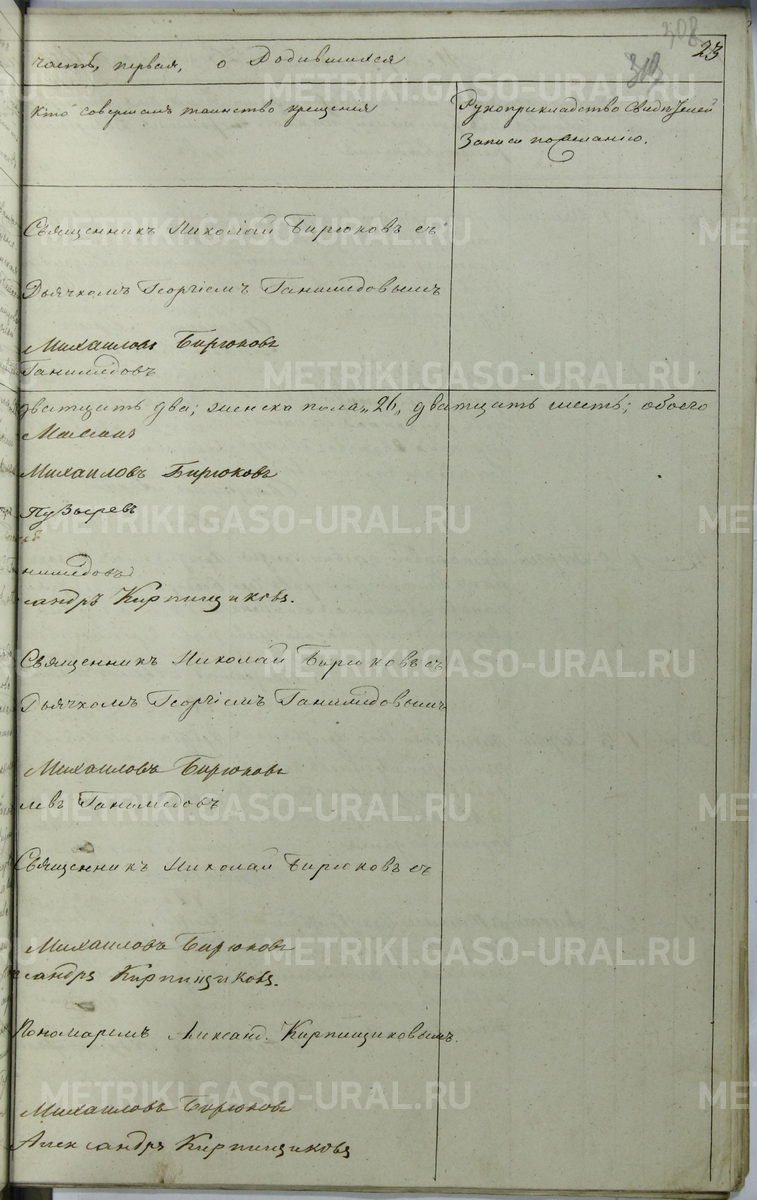 308
319
23
часть, первая, о Родившихся
Кто совершалъ таинство крещения
Рукоприкладство Свидѣтелей
Записи по желанію.
Священникъ Николай Бирюковъ съ
Дьячкомъ Георгіемъ Ганимедовымъ
Михаиловъ Бирюковъ
Ганимедовъ
дватцать два; женска пола „26„ дватцать шесть; обоего
Михаиловъ Бирюковъ
Пузыревъ
нимедовъ
сандръ Кирпищиковъ.
Священникъ Николай Бирюковъ съ
Дьячкомъ Георгіемъ Ганимедовымъ
Михаиловъ Бирюковъ
Ганимедовъ
Священникъ Николай Бирюковъ съ
Михаиловъ Бирюковъ
сандръ Кирпищиковъ.
Пономаремъ Александ. Кирпищиковымъ.
Михаиловъ Бирюковъ
Александръ Кирпищиковъ
METRIKI.GASO-URAL.RU